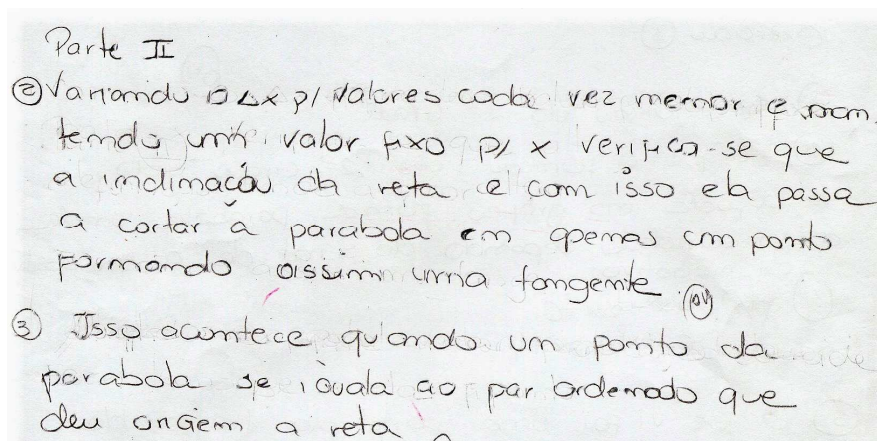 Parte II
② Variando o Δx p/ valores cada vez menor e man
tendo um valor fixo p/ x verifica-se que
a inclinação da reta e com isso ela passa
a cortar a parabola em apenas um ponto
formando assim uma tangente.
③ Isso acontece quando um ponto da
parabola se iguala ao par ordenado que
deu origem a reta